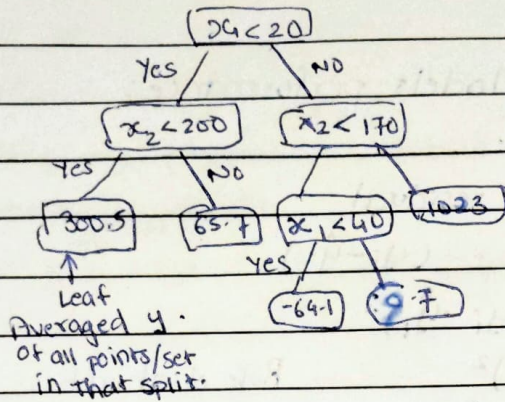 x₁<20
Yes
NO
x₂<200
x₂<170
Yes
NO
300.5
65.7
x₁<40
1023
Yes
-64.1
9.7
Leaf
Averaged y.
of all points/set
in that split.